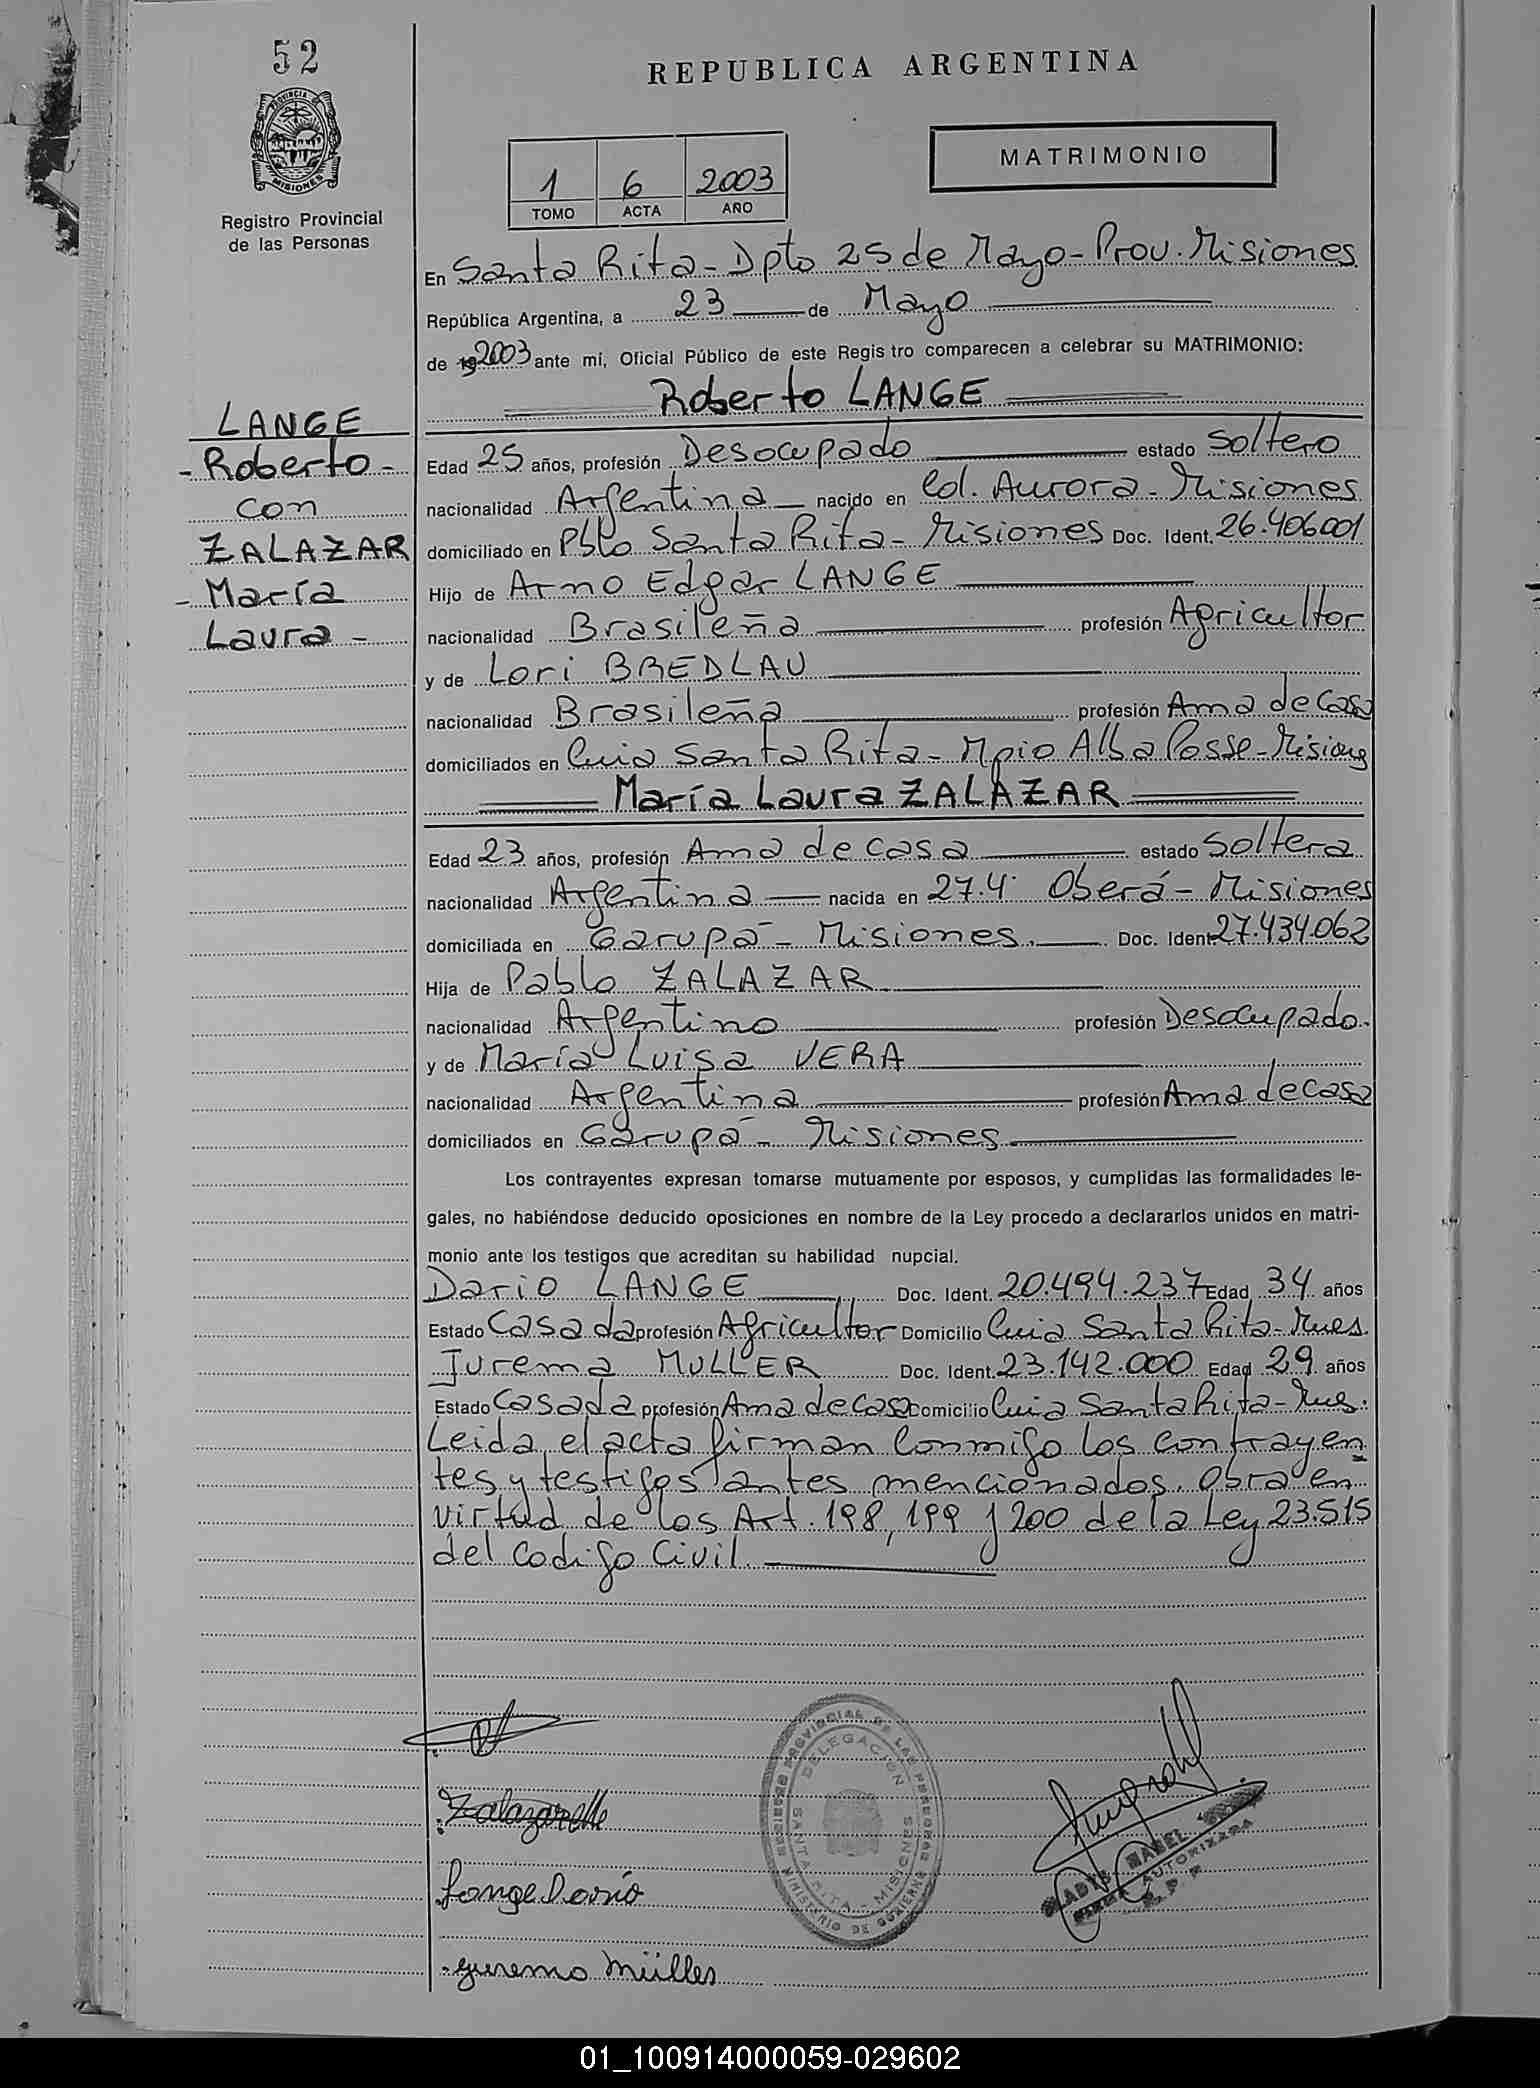 52
REPUBLICA ARGENTINA
PROVINCIA DE
MISIONES
Registro Provincial
de las Personas
MATRIMONIO
1 6 2003
TOMO ACTA AÑO
En Santa Rita - Dpto 25 de Mayo - Prov. Misiones
República Argentina, a 23 de Mayo
de 19 2003 ante mí, Oficial Público de este Registro comparecen a celebrar su MATRIMONIO:
Roberto LANGE
LANGE
- Roberto -
con
ZALAZAR
- María
Laura -
Edad 25 años, profesión Desocupado estado Soltero
nacionalidad Argentina nacido en Col. Aurora - Misiones
domiciliado en Pblo Santa Rita - Misiones Doc. Ident. 26.406001
Hijo de Arno Edgar LANGE
nacionalidad Brasileña profesión Agricultor
y de Lori BREDLAU
nacionalidad Brasileña profesión Ama de Casa
domiciliados en Cnia Santa Rita - Mpio Alba Posse - Misiones
María Laura ZALAZAR
Edad 23 años, profesión Ama de casa estado Soltera
nacionalidad Argentina nacida en 27.4. Oberá - Misiones
domiciliada en Garupá - Misiones. Doc. Ident 27.434.062
Hija de Pablo ZALAZAR
nacionalidad Argentino profesión Desocupado.
y de María Luisa VERA
nacionalidad Argentina profesión Ama de Casa
domiciliados en Garupá - Misiones
Los contrayentes expresan tomarse mutuamente por esposos, y cumplidas las formalidades le-
gales, no habiéndose deducido oposiciones en nombre de la Ley procedo a declararlos unidos en matri-
monio ante los testigos que acreditan su habilidad nupcial.
Dario LANGE Doc. Ident. 20.494.237 Edad 34 años
Estado Casada profesión Agricultor Domicilio Cnia Santa Rita - Mnes.
Jurema MULLER Doc. Ident. 23.142.000 Edad 29 años
Estado Casada profesión Ama de Casa Domicilio Cnia Santa Rita - Mnes.
Leida el acta firman Conmigo los contrayen
tes y testigos antes mencionados. Obra en
virtud de los Art. 198, 199 y 200 de la Ley 23.515
del Codigo Civil.
Zalazar
Lange Dario
REGISTRO PROVINCIAL DE LAS PERSONAS
DELEGACION
SANTA RITA - MISIONES
MINISTERIO DE GOBIERNO
GLADYS MABEL
FIRMA AUTORIZADA
R. P. P.
Jurema Müller
01_100914000059-029602